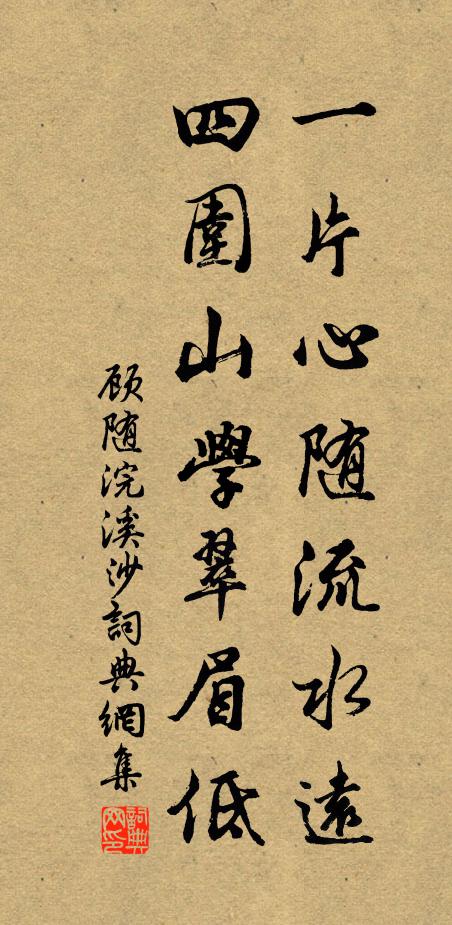 一片心随流水遠
四圍山學翠眉低
顾随浣溪沙詞典網集
詞典網印